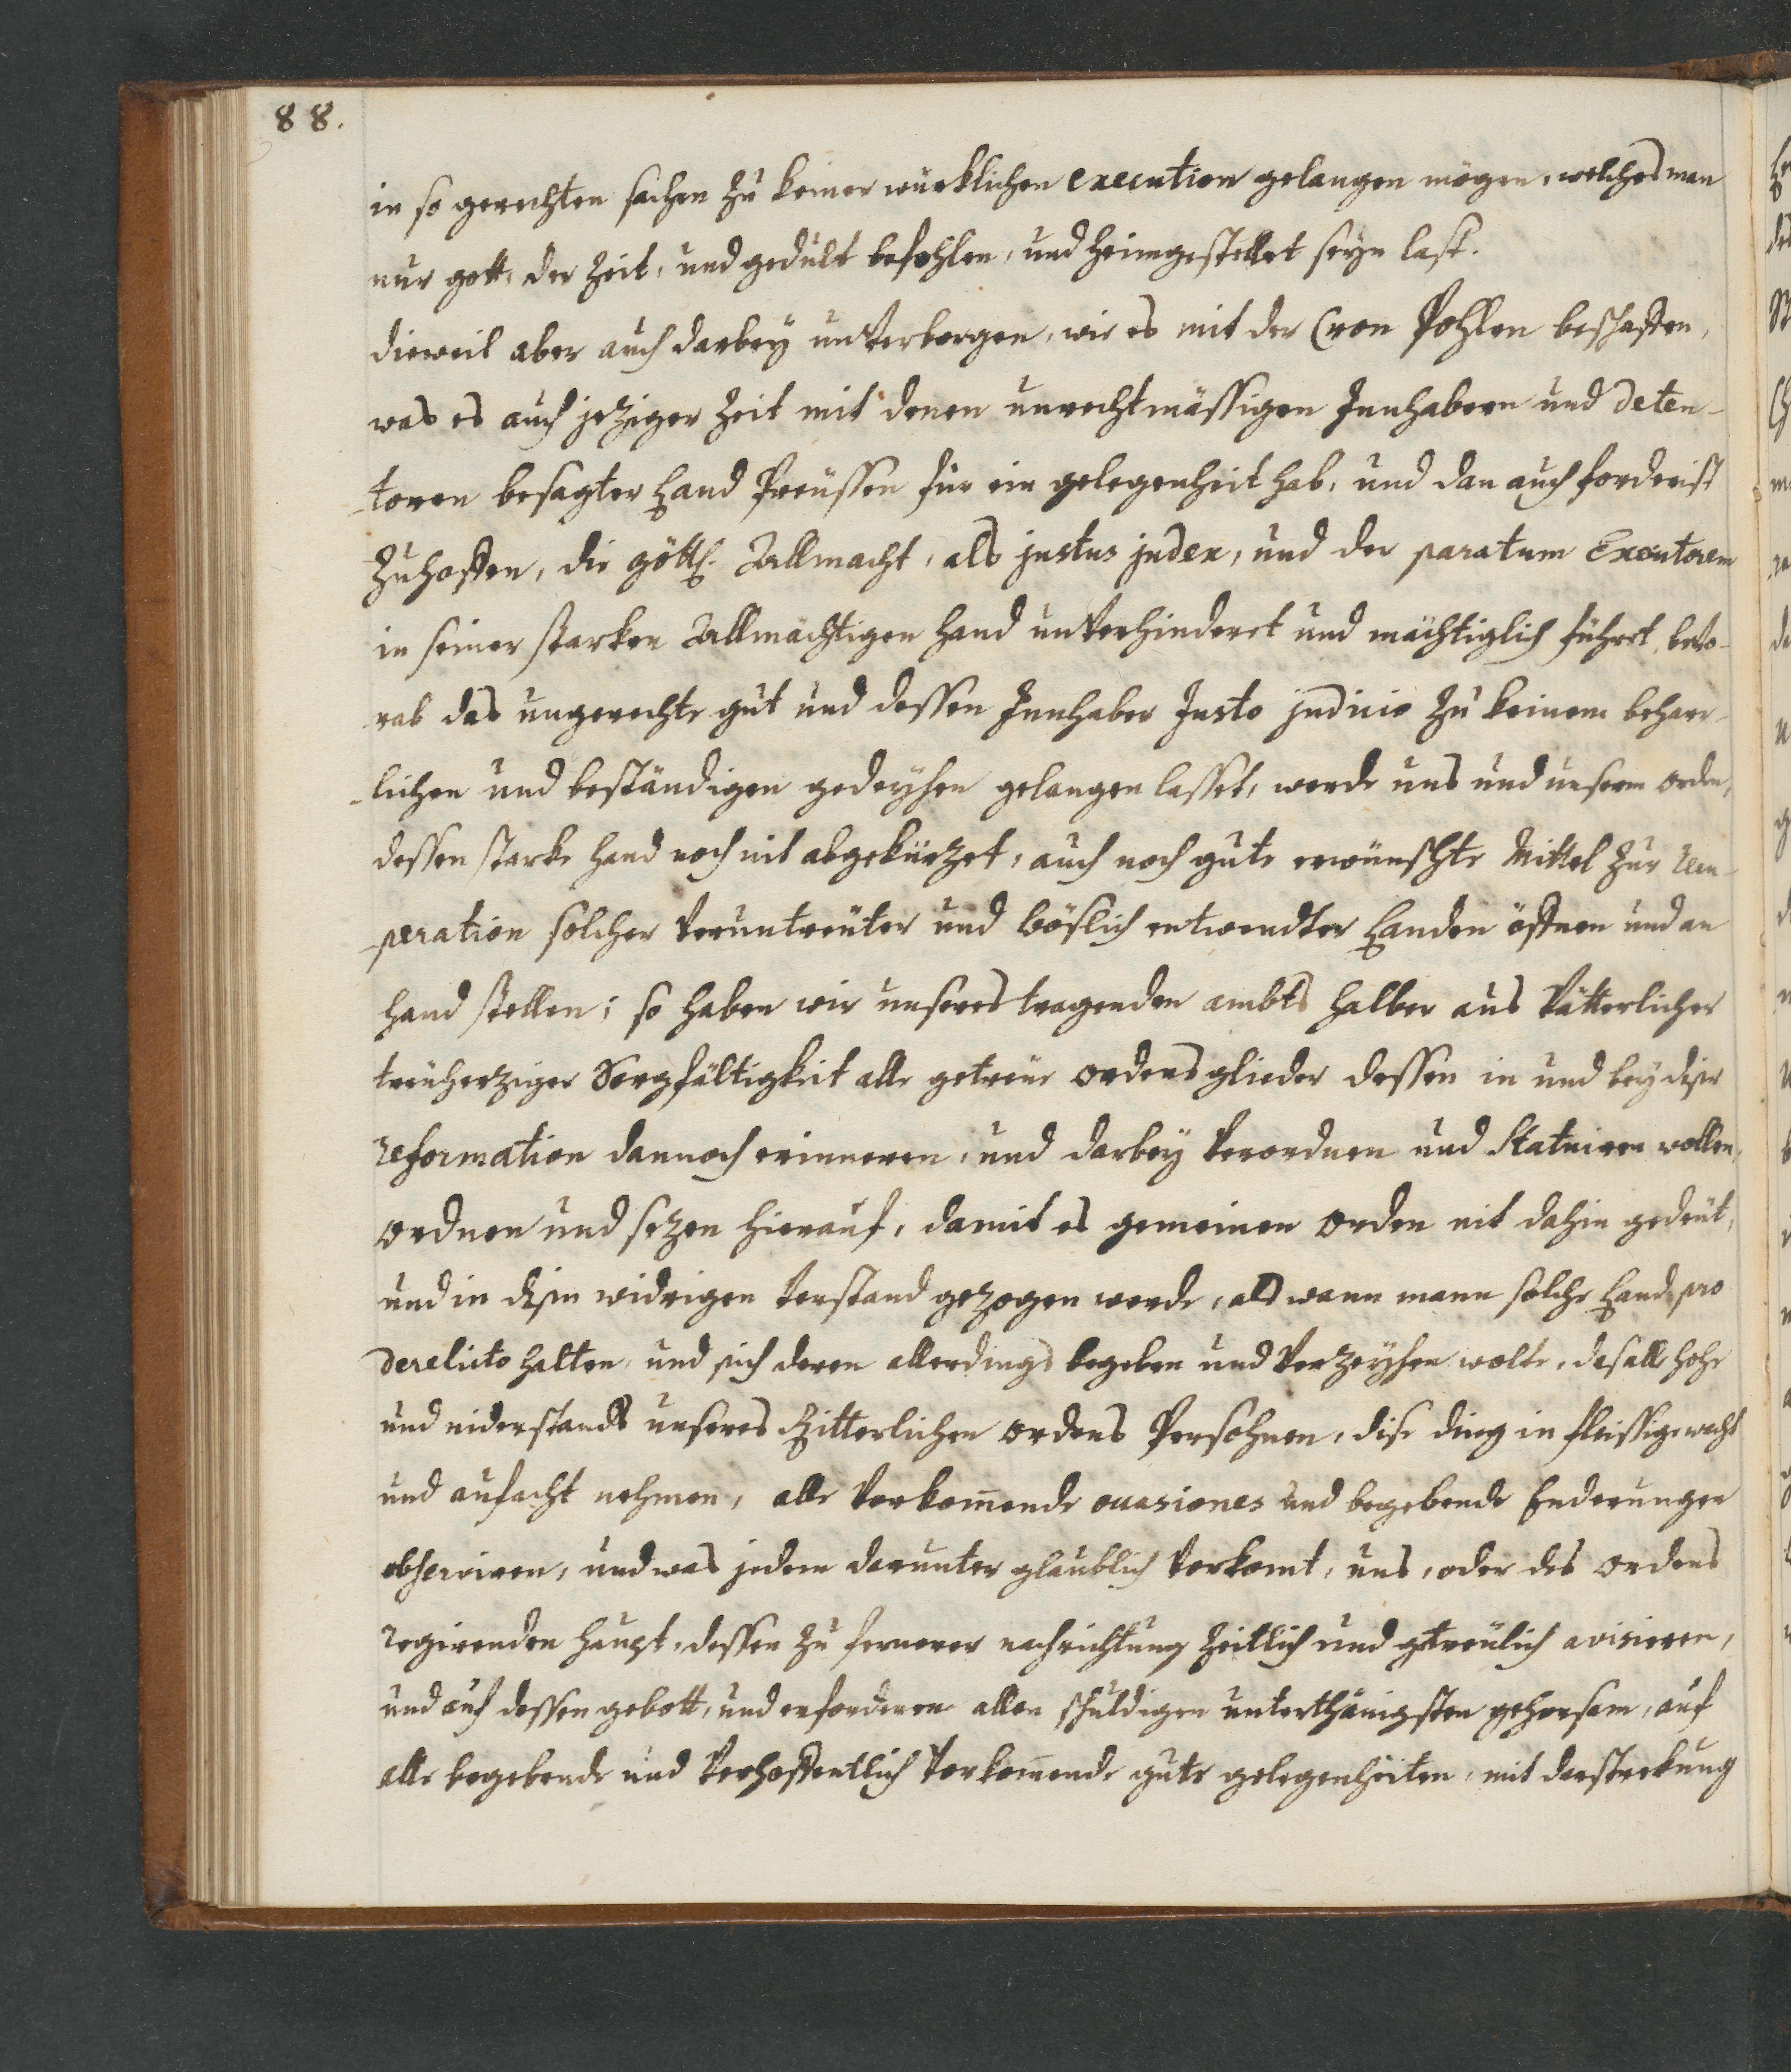 88.
in so gerechten sachen zu keiner würklichen execution gelangen mögen, welches man
nur gott, der zeit, und gedult befohlen, und heimgestellet seyn last.
dieweil aber auch darbey unverborgen, wie es mit der Cron Pohlen beschaffen,
was es auch jeziger zeit mit denen unrechtmässigen Innhabern und deten-
-toren besagter Land Preüssen für ein gelegenheit hab, und dan auch forderist
zuhoffen, die göttl. Allmacht, als justus judex, und der paratum Executorem
in seiner starken Allmächtigen hand unverhinderet und mächtiglich führet, bevo-
-rab das ungerechte gut und dessen Innhaber Justo judicio zu keinem beharr-
-lichen und beständigen gedeyhen gelangen lasset, werde uns und unserm orden,
dessen starke hand noch nit abgekürzet, auch noch gute erwünschte Mittel zur recu-
-peration solcher veruntreüter und böslich entwendter Landen öffnen und an
hand stellen; so haben wir unseres tragenden ambts halber aus vätterlicher
treüherziger Sorgfältigkeit alle getreüe ordens glieder dessen in und bey diser
reformation dannoch erinneren, und darbey verordnen und Statuiren wollen,
ordnen und sezen hierauf, damit es gemeinen orden nit dahin gedeüt,
und in disen widrigen verstand gezogen werde, als wann mann solche Land pro
derelicto halten, und sich deren allerdings begeben und verzeyhen wolte, das all hohe
und niderstands unseres Ritterlichen ordens Persohnen, dise ding in fleissige wacht
und aufacht nehmen, alle vorkom̄ende occasiones und begebende Enderungen
observiren, und was jedem darunter glaublich vorkomt, uns, oder des ordens
regirenden haupt, dessen zu fernerer nachrichtung zeitlich und getreülich avisieren,
und auf dessen gebott, und erforderen allen schuldigen unterthänigsten gehorsam, auf
alle begebende und verhoffentlich vorkom̄ende gute gelegenheiten, mit darstrekung